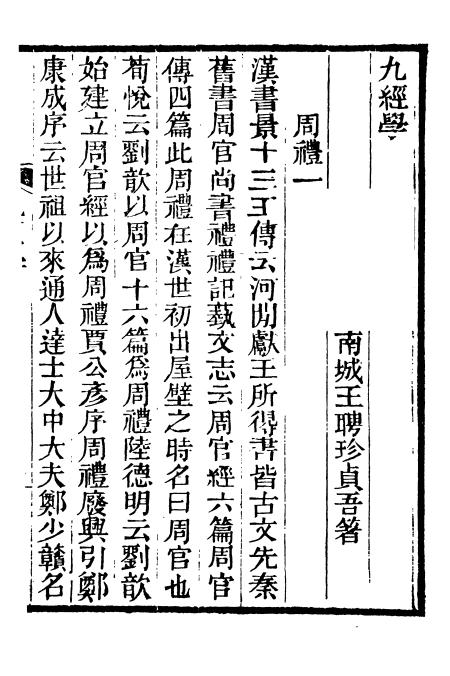 九經學
南城王聘珍貞吾著
周禮一
漢書景十三王傳云河閒獻王所得書皆古文先秦
舊書周官尚書禮禮記蓺文志云周官經六篇周官
傳四篇此周禮在漢世初出屋壁之時名曰周官也
荀悅云劉歆以周官十六篇爲周禮陸德明云劉歆
始建立周官經以爲周禮賈公彥序周禮廢興引鄭
康成序云世祖以來通人達士大中大夫鄭少贛名